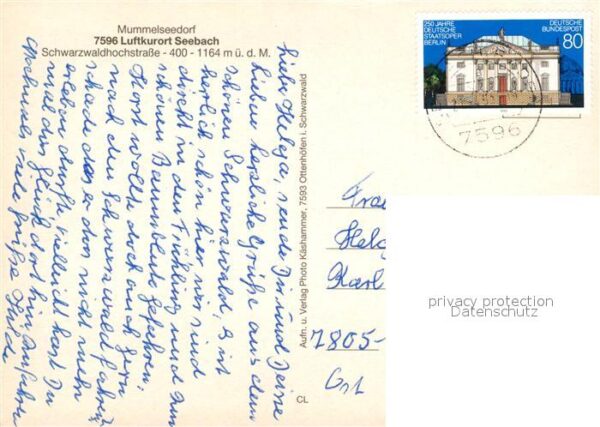 Mummelseedorf
7596 Luftkurort Seebach
Schwarzwaldhochstraße - 400 - 1164 m ü. d. M.
250 JAHRE
DEUTSCHE
STAATSOPER
BERLIN
DEUTSCHE
BUNDESPOST
80
7596
liebe Helga, sende Dir und Deine
lieben herzliche Grüße aus dem
schönen Schwarzwald, es ist
herrlich schön hier wir sind
direkt in den Frühling und zum
schönen Baumblüte gefahren.
Horst wollte doch auch gern
nach den Schwarzwald fahren
schade das er das nicht mehr
erleben durfte vielleicht hast Du
mal das Glück dort hin zu fahren
nochmals viele Grüße Hilde
Aufn. u. Verlag Photo Käshammer, 7593 Ottenhöfen i. Schwarzwald
CL
Helg
Karl
7805-
privacy protection
Datenschutz